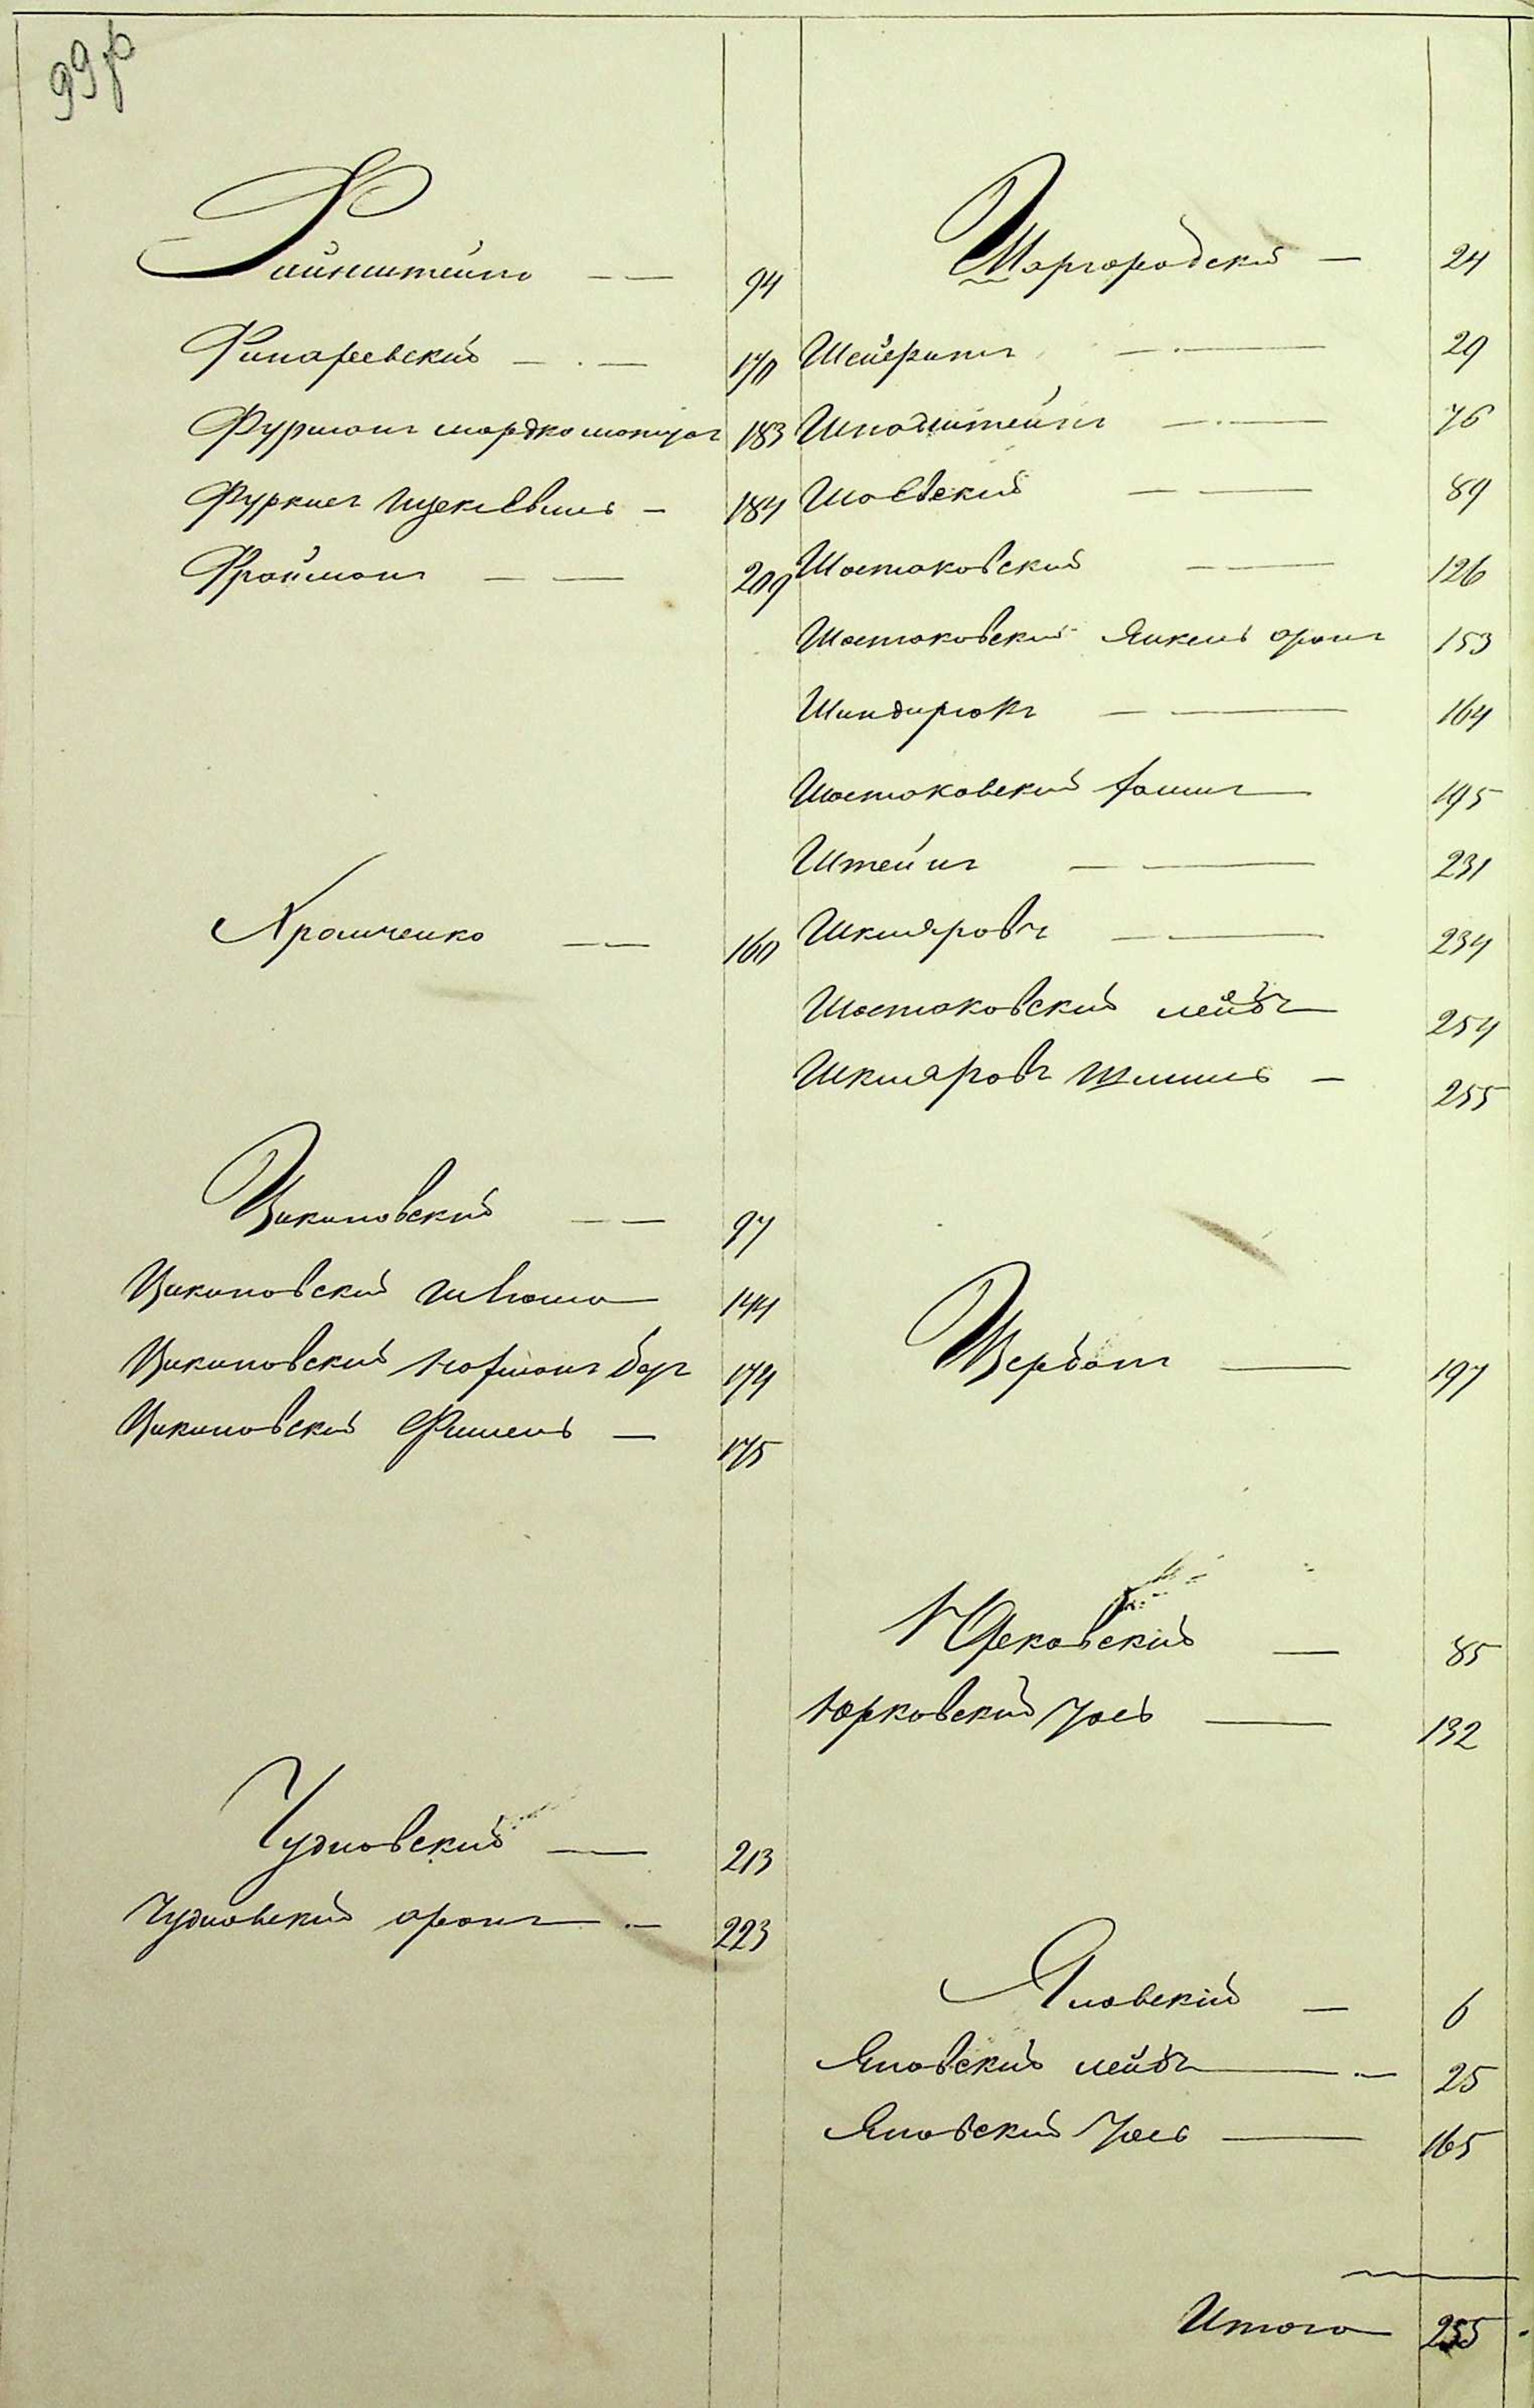 99 р
Файнштейнъ — — 94
Финареевскій — — 170
Фурманъ мордко 183
Фуркисъ 184
Фрайманъ — — 209
Храмченко — — 160
Цикиновскій — — 97
Цикиновскій 144
Цикиновскій 174
Цикиновскій Фишель — 175
Чудновскій — 213
Чудновскій аронъ — 223
Шаргородскій — 24
29
76
Шаевскій — — 89
Шостаковскій — — 126
Шостаковскій Янкель аронъ 153
Шиндирюкъ — — 164
Шостаковскій 195
Штейнъ — — 231
Шкляровъ — — 234
Шостаковскій лейбъ 254
Шкляровъ — 255
Щербатъ — 197
Юрковскій — 85
Юрковскій Іось — 132
Яновскій — 6
Яновскій лейбъ — 25
Яновскій Іось — 165
Итого 255